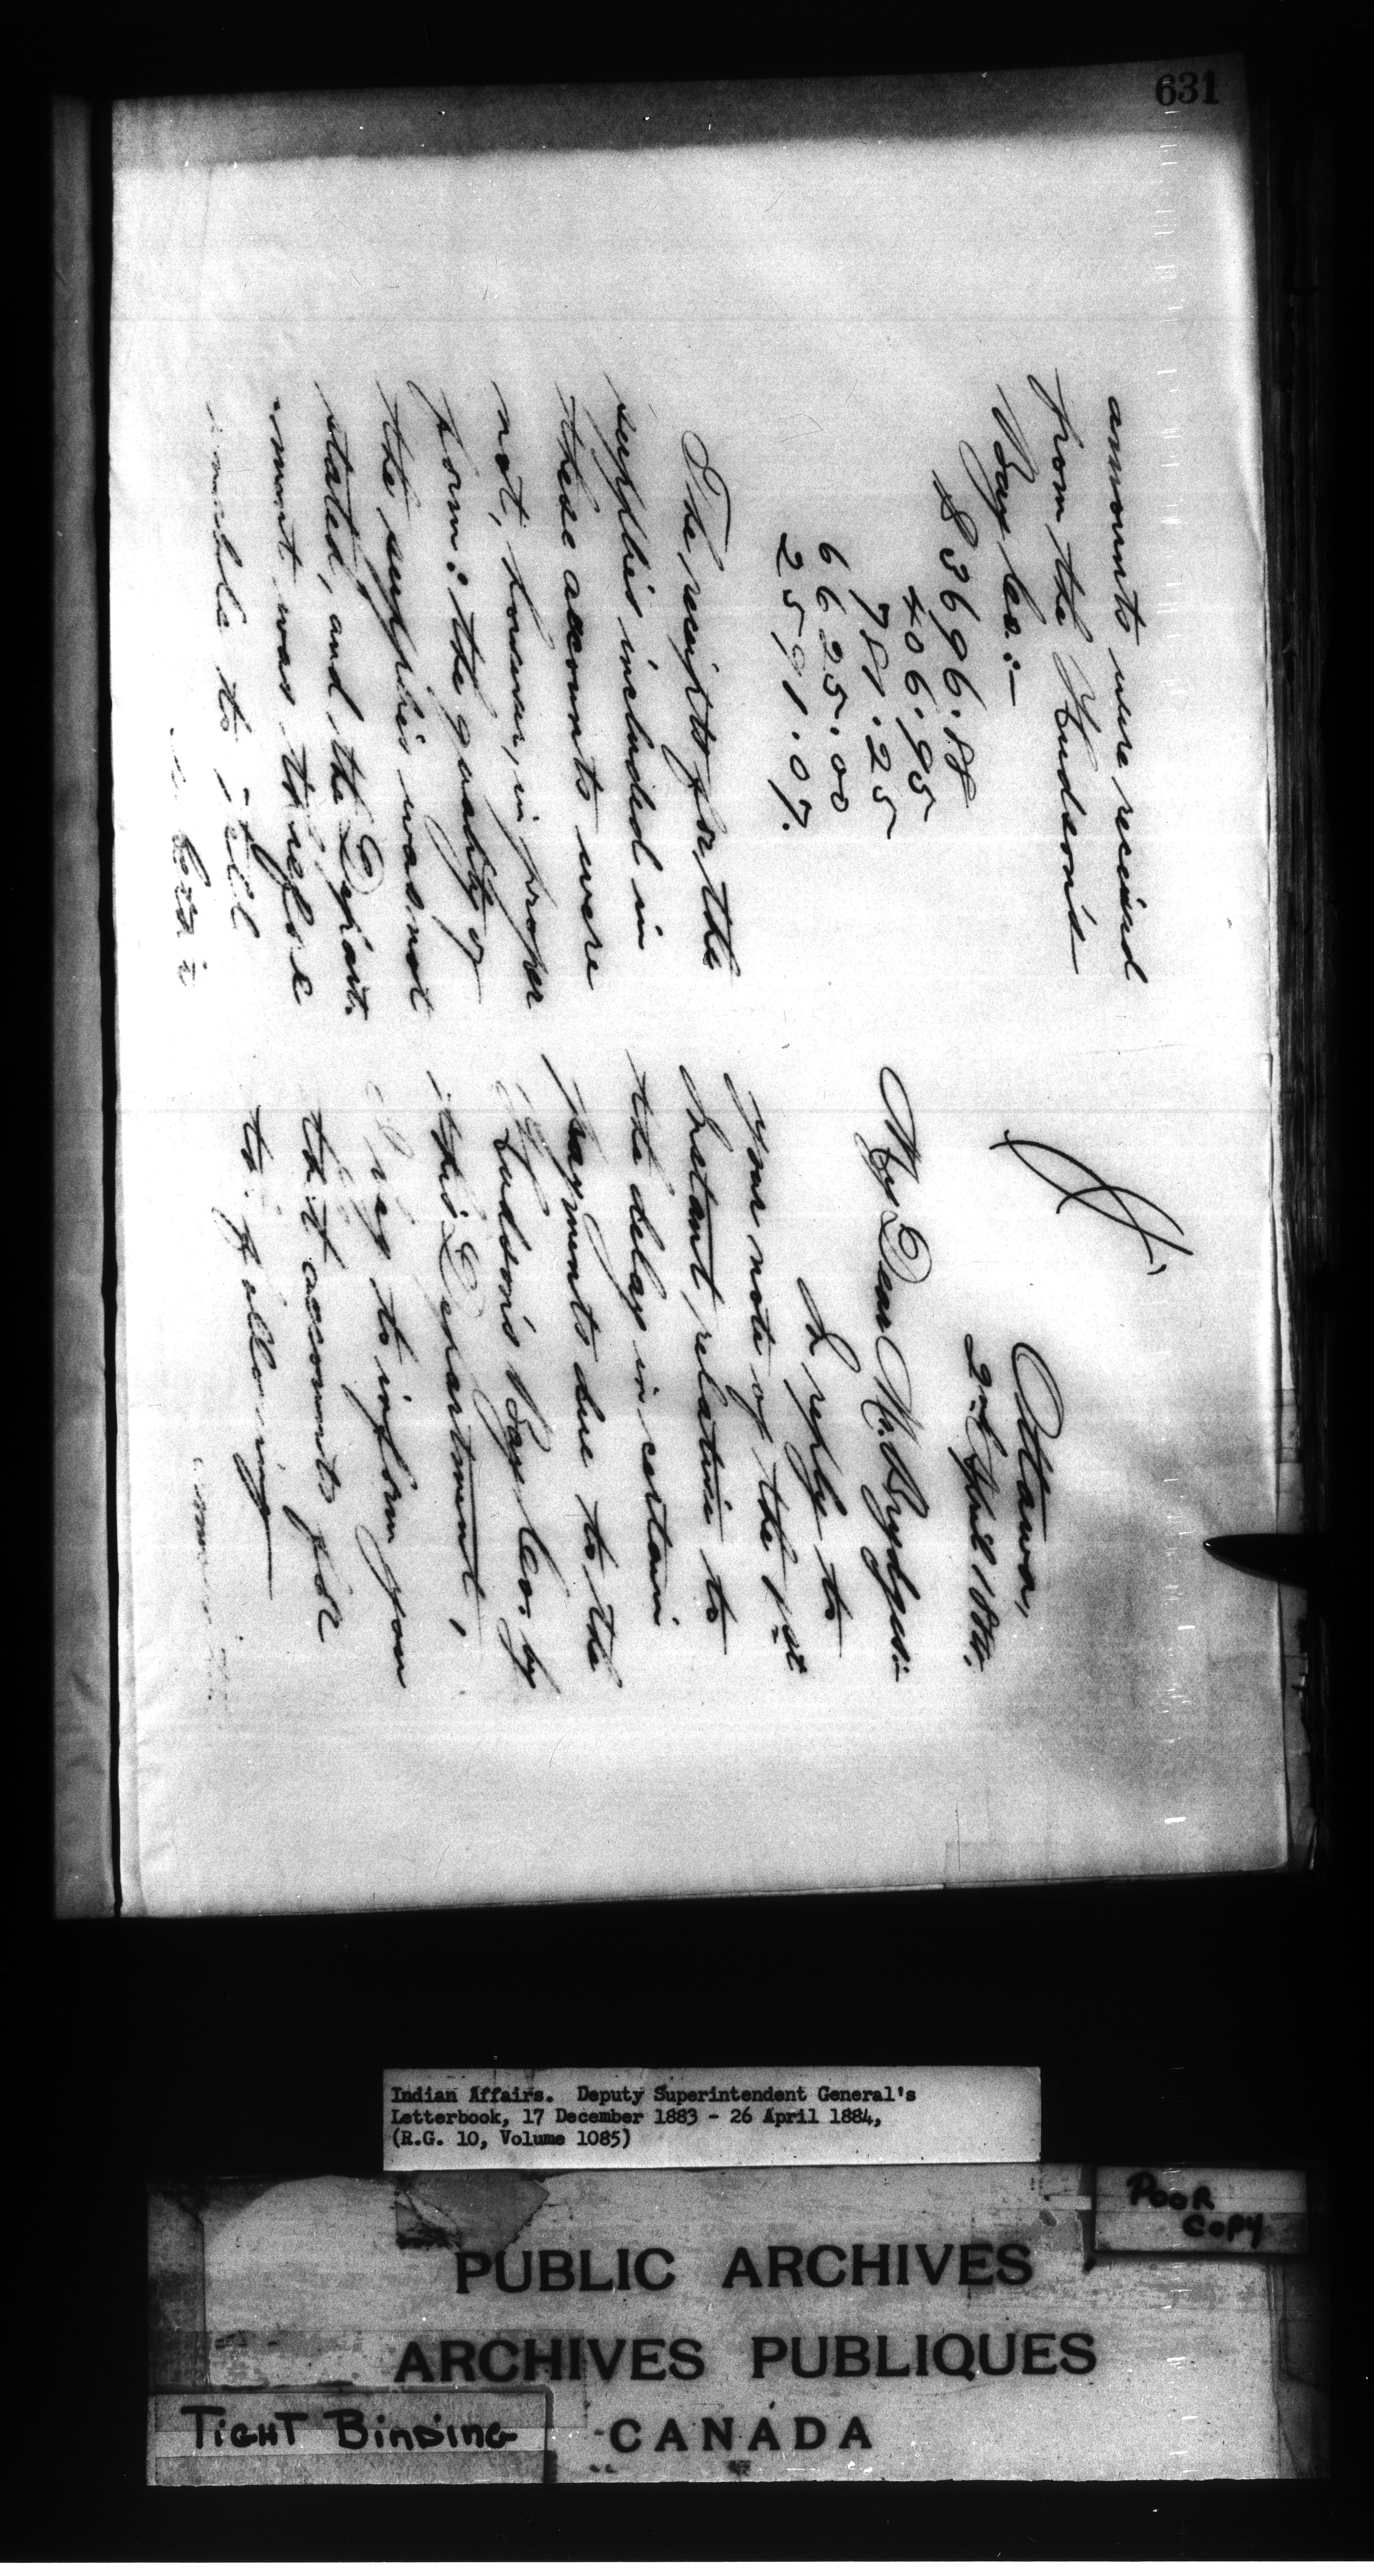 631
Ottawa,
2nd April 1884.
My Dear Mr. Brydges:-
In reply to
your note of the 1st
Instant, relative to
the delay in certain
payments due to the
Hudson's Bay Co. by
this Department,
I beg to inform you
that accounts for
the following
amounts were received
from the Hudson's
Bay Co:-
$3696.18
406.95
781.25
6625.00
2591.07.
The receipts for the
supplies included in
these accounts were
not, however, in proper
form: the quantity of
the supplies was not
stated, and the Depart-
ment was therefore
unable to
Indian Affairs. Deputy Superintendent General's
Letterbook, 17 December 1883 - 26 April 1884,
(R.G. 10, Volume 1085)
POOR
COPY
PUBLIC ARCHIVES
ARCHIVES PUBLIQUES
CANADA
TIGHT BINDING